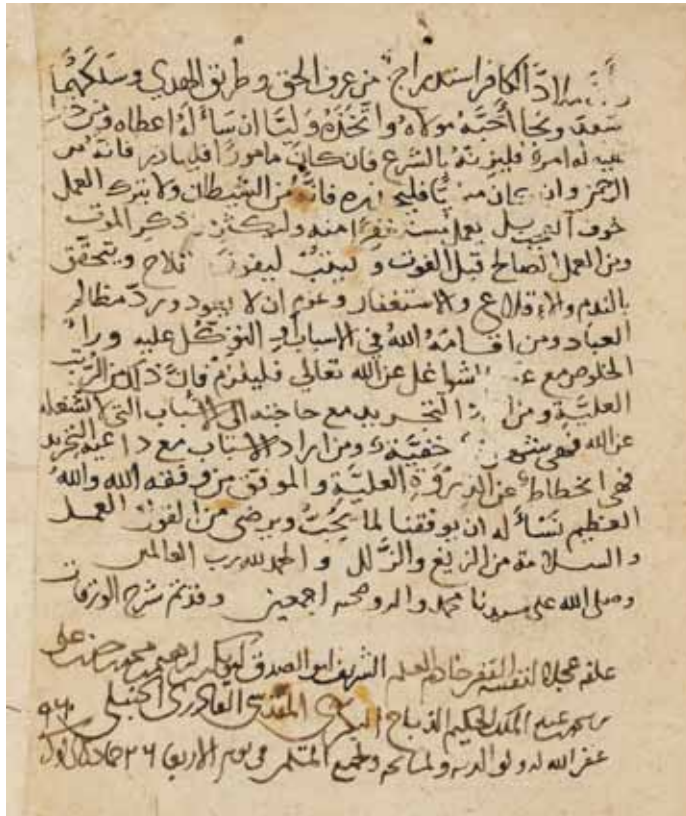 الكافر استدراج من عرف الحق وطريق الهدي وسلكهما
سعد ونجا أحبه مولاه واتخذه وليا ان سأله اعطاه ومن
عليه له امره فليزنه بالشرع فان كان مامورا فليبادر فانه من
الرحمن وان كان فانه من الشيطان ولا يترك العمل
خوف العجب بل يعمل منه وليكثر ذكر الموت
ومن العمل الصالح قبل الفوت و ليفوت فلاح ويتحقق
بالندم والاقلاع والاستغفار وعزم ان لا يعود ورد مظالم
العباد ومن اقامه الله في الاسباب التوكل عليه ورأ
الخلوص مع عن الله تعالي فليلزم فان ذلك من الرتب
العلية ومن التجريد مع حاجته الى الاسباب التي لا تشغله
عن الله فهي خفية ومن اراد الاسباب مع داعية التجريد
فهي انحطاط عن الذروة العلية والموفق من وفقه الله والله
العظيم نسأله ان يوفقنا لما يحب ويرضى من القول العمل
والسلامة من الزيغ والزلل والحمد لله رب العالمين
وصلى الله على سيدنا محمد واله وصحبه اجمعين وقد تم شرح الورقات
علقه عجلا لنفسه الفقر خادم العلم الشريف ابو الصدق ابو بكر ابن ابراهيم بن محمد
عبد الملك الحكيم الذباح البكري المقدسي القادري الحنبلي
غفر الله له ولوالديه ولمشايخه ولجميع المسلمين في يوم الاربعا ٢٦ جمادى الاول